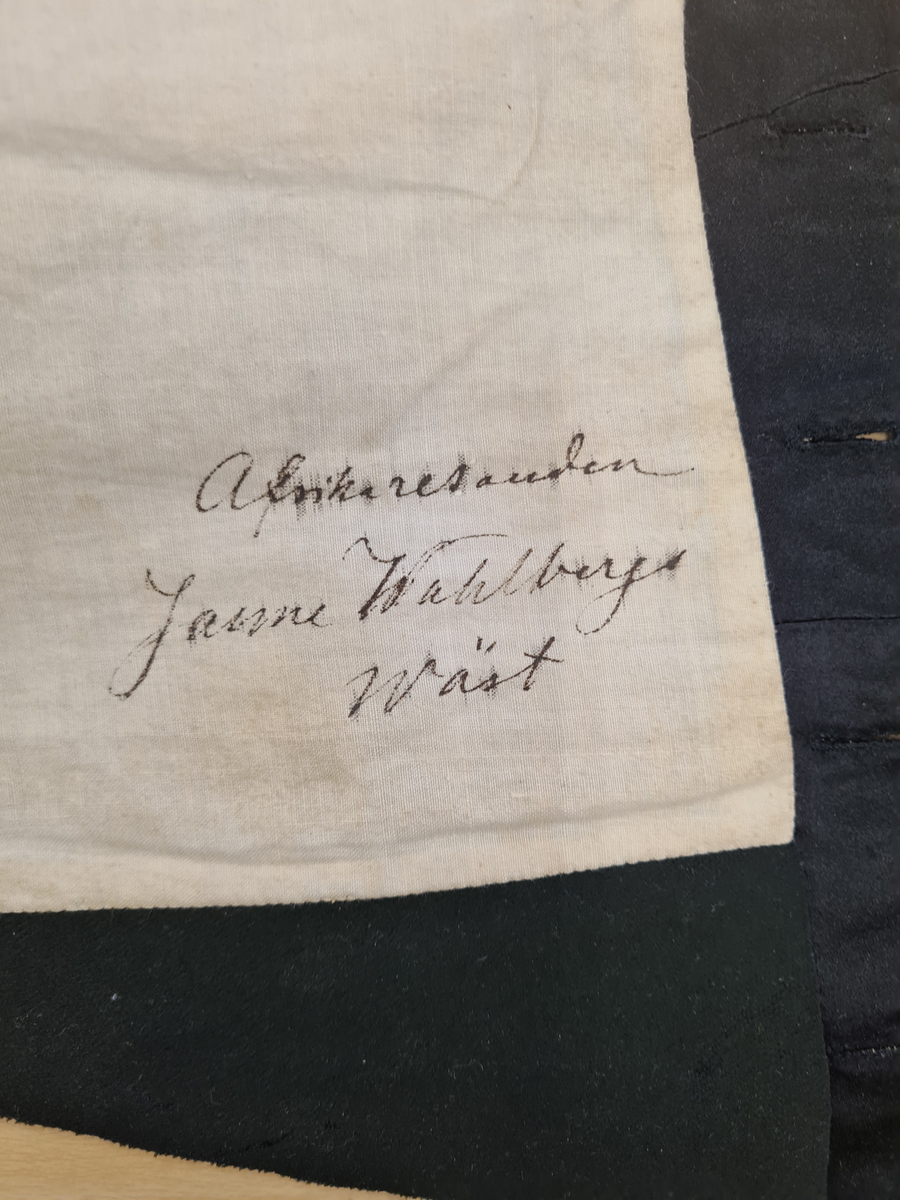 Afrikaresanden
Janne Wahlbergs
Wäst